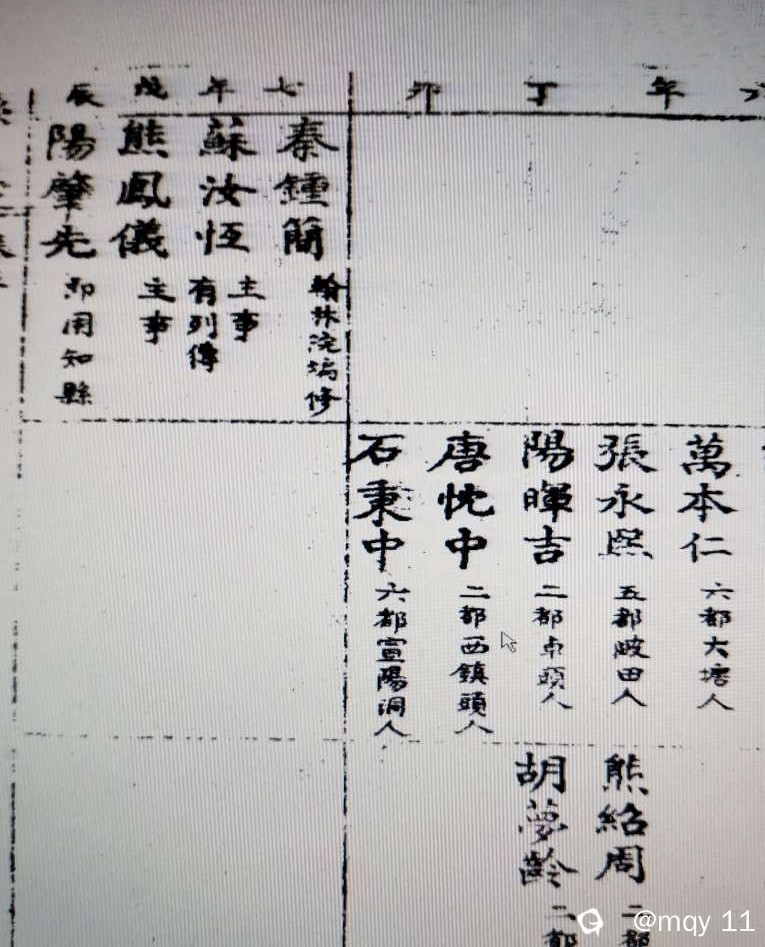 年丁卯
萬本仁 六都大塘人
張永熙 五都陂田人
陽暉吉 二都卓頭人
唐忱中 二都西鎮頭人
石秉中 六都宣陽洞人
熊紹周 二都
胡夢齡 二都
七年戊辰
秦鍾簡 翰林浣编修
蘇汝恆 主事 有列傳
熊鳳儀 主事
陽肇先 即用知縣
@mqy 11